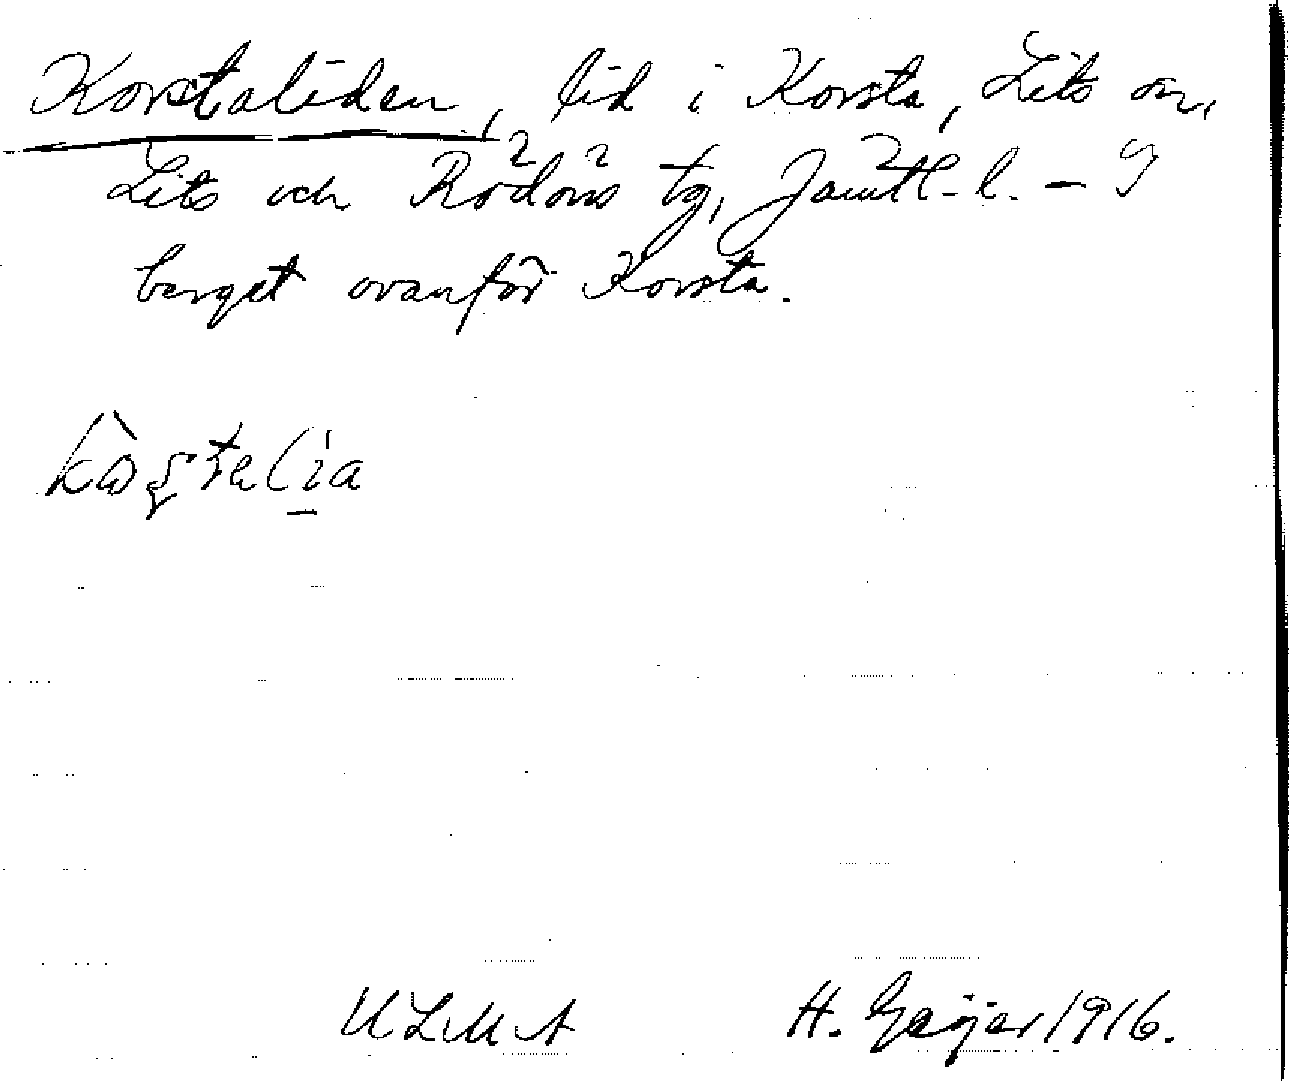 Korstaliden, lid i Korsta, Lits sn,
Lits och Rödöns tg, Jämtl. l. – I
berget ovanför Korsta.
ULMA H. Geijer 1916.